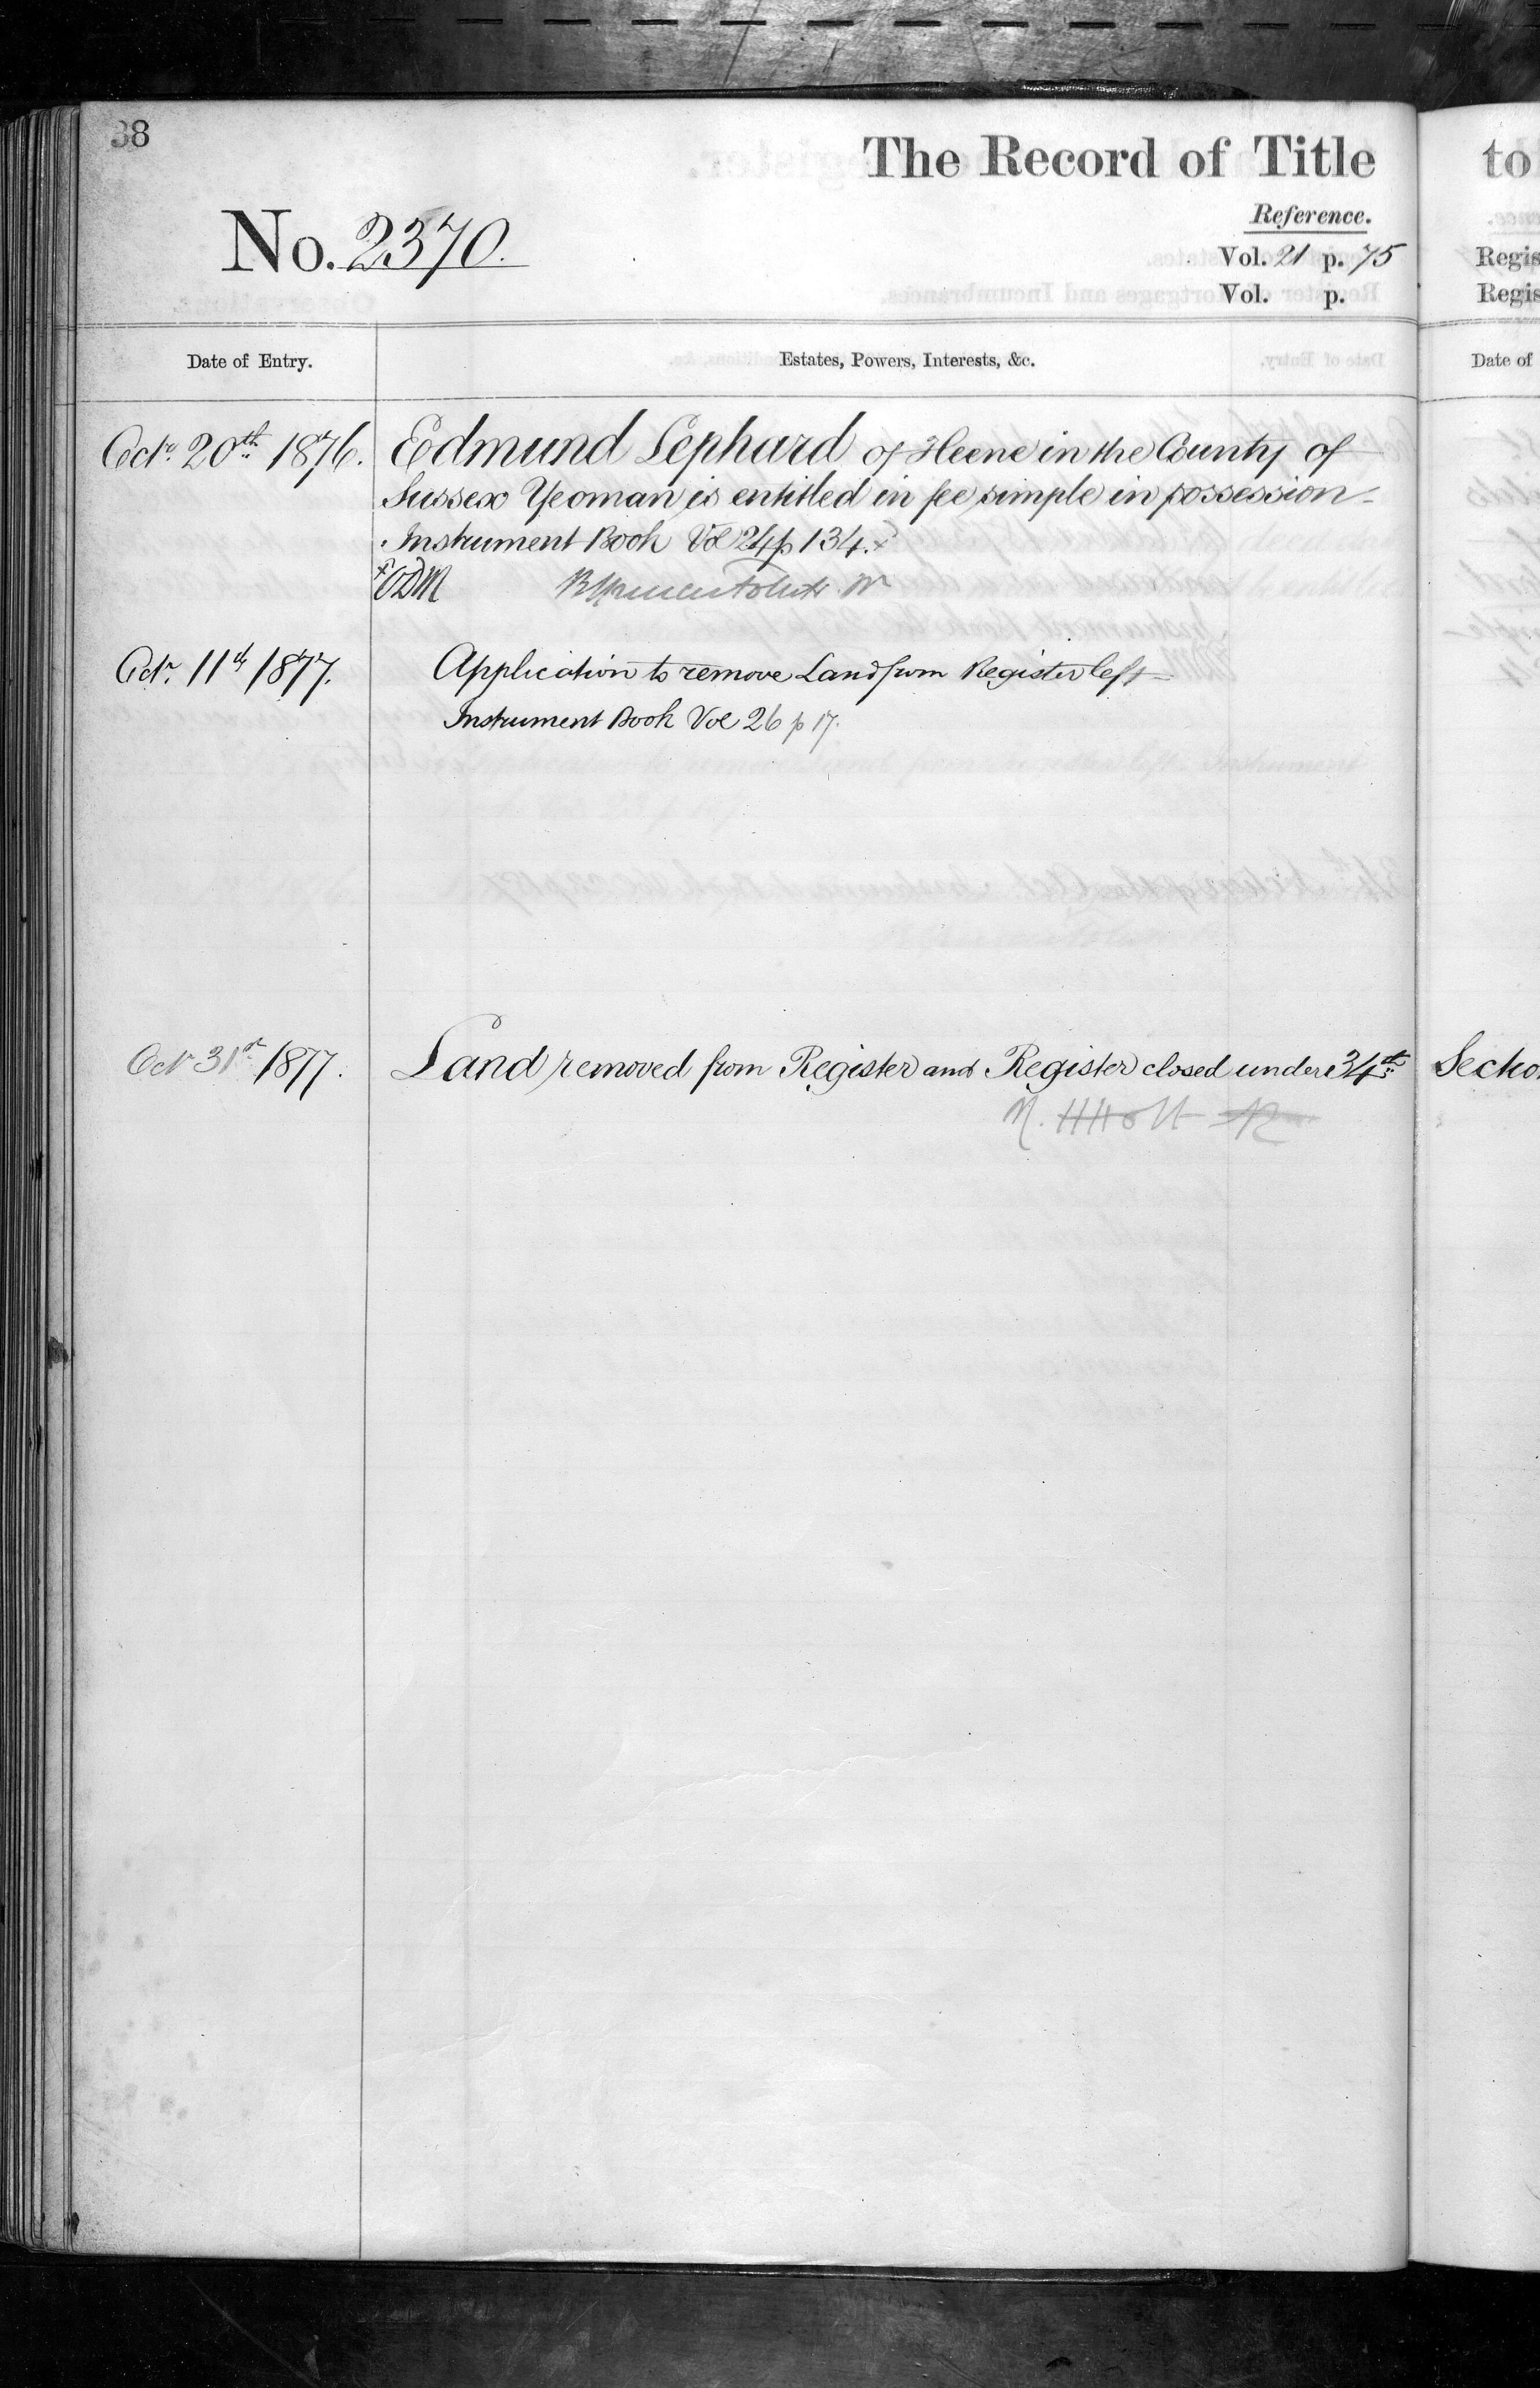 38
The Record of Title
Reference.
No. 2370.
Vol. 21 p. 75
Vol. p.
Date of Entry.
Estates, Powers, Interests, &c.
Octr. 20th 1876.
Edmund Lephard of Heene in the County of
Sussex Yeoman is entitled in fee simple in possession
Instrument Book Vol 24 p 134. x
x ODM
Octr. 11th 1877.
Application to remove Land from Register left
Instrument Book Vol 26 p 17.
Octr 31st 1877.
Land removed from Register and Register closed under 34th
to
Regis
Regis
Date of
Sectio